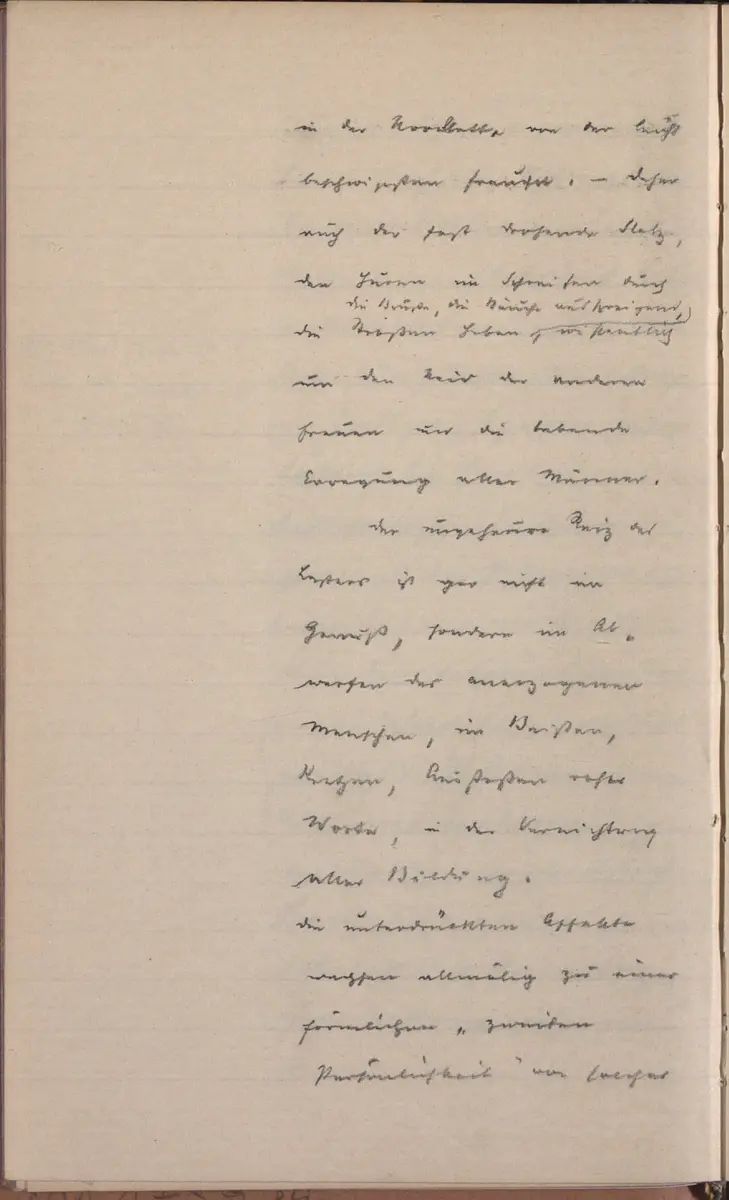 in der
beschwipsten
auch der fast drohende Stolz,
den Huren im Schreiten durch
die Brüste, die Bäuche ausspreizend,
die Straßen haben, wissentlich
um den Neid der anderen
Frauen und die bebende
Erregung aller Männer.
der ungeheure Reiz des
Lasters ist gar nicht im
Genuß, sondern im Ab„
werfen des anerzogenen
Menschen, im Beißen,
Kratzen, Ausstoßen roher
Worte, in der Vernichtung
aller Bildung.
die unterdrückten Affekte
wachsen allmälig zu einer
förmlichen „zweiten
Persönlichkeit" von solcher